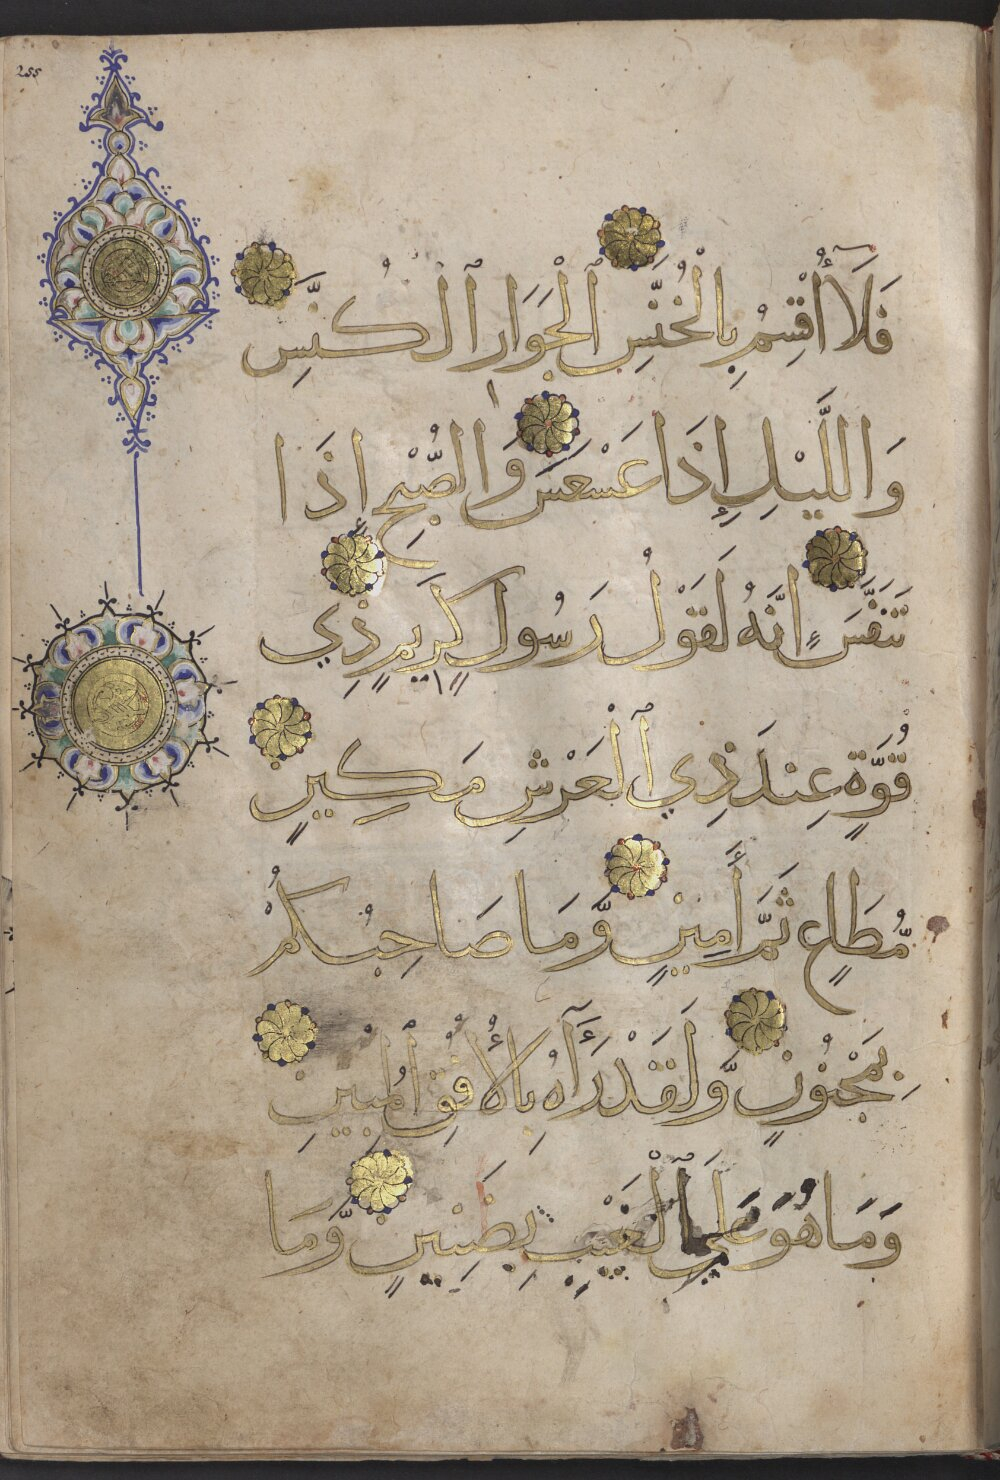 255
فَلَآ أُقْسِمُ بِالْخُنَّسِ ٱلْجَوَارِ ٱلْكُنَّسِ
وَاللَّيْلِ إِذَا عَسْعَسَ وَالصُّبْحِ إِذَا
تَنَفَّسَ إِنَّهُ لَقَوْلُ رَسُولٍ كَرِيمٍ ذِي
قُوَّةٍ عِندَ ذِي ٱلْعَرْشِ مَكِينٍ
مُّطَاعٍ ثَمَّ أَمِينٍ وَّمَا صَاحِبُكُمْ
بِمَجْنُونٍ وَّلَقَدْ رَءَآهُ بِالْأُفُقِ ٱلْمُبِينِ
وَمَا هُوَ عَلَى ٱلْغَيْبِ بِضَنِينٍ وَّمَا